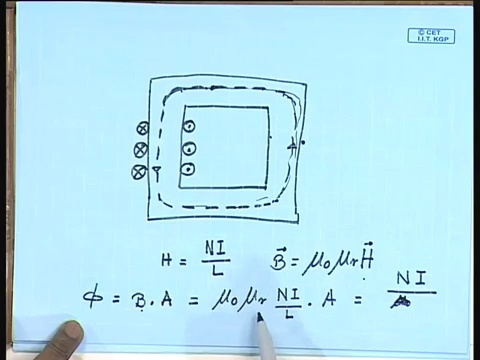 © CET
I.I.T. KGP
H = NI / L    B⃗ = μ₀μᵣH⃗
ϕ = B . A = μ₀μᵣ NI / L . A = NI /